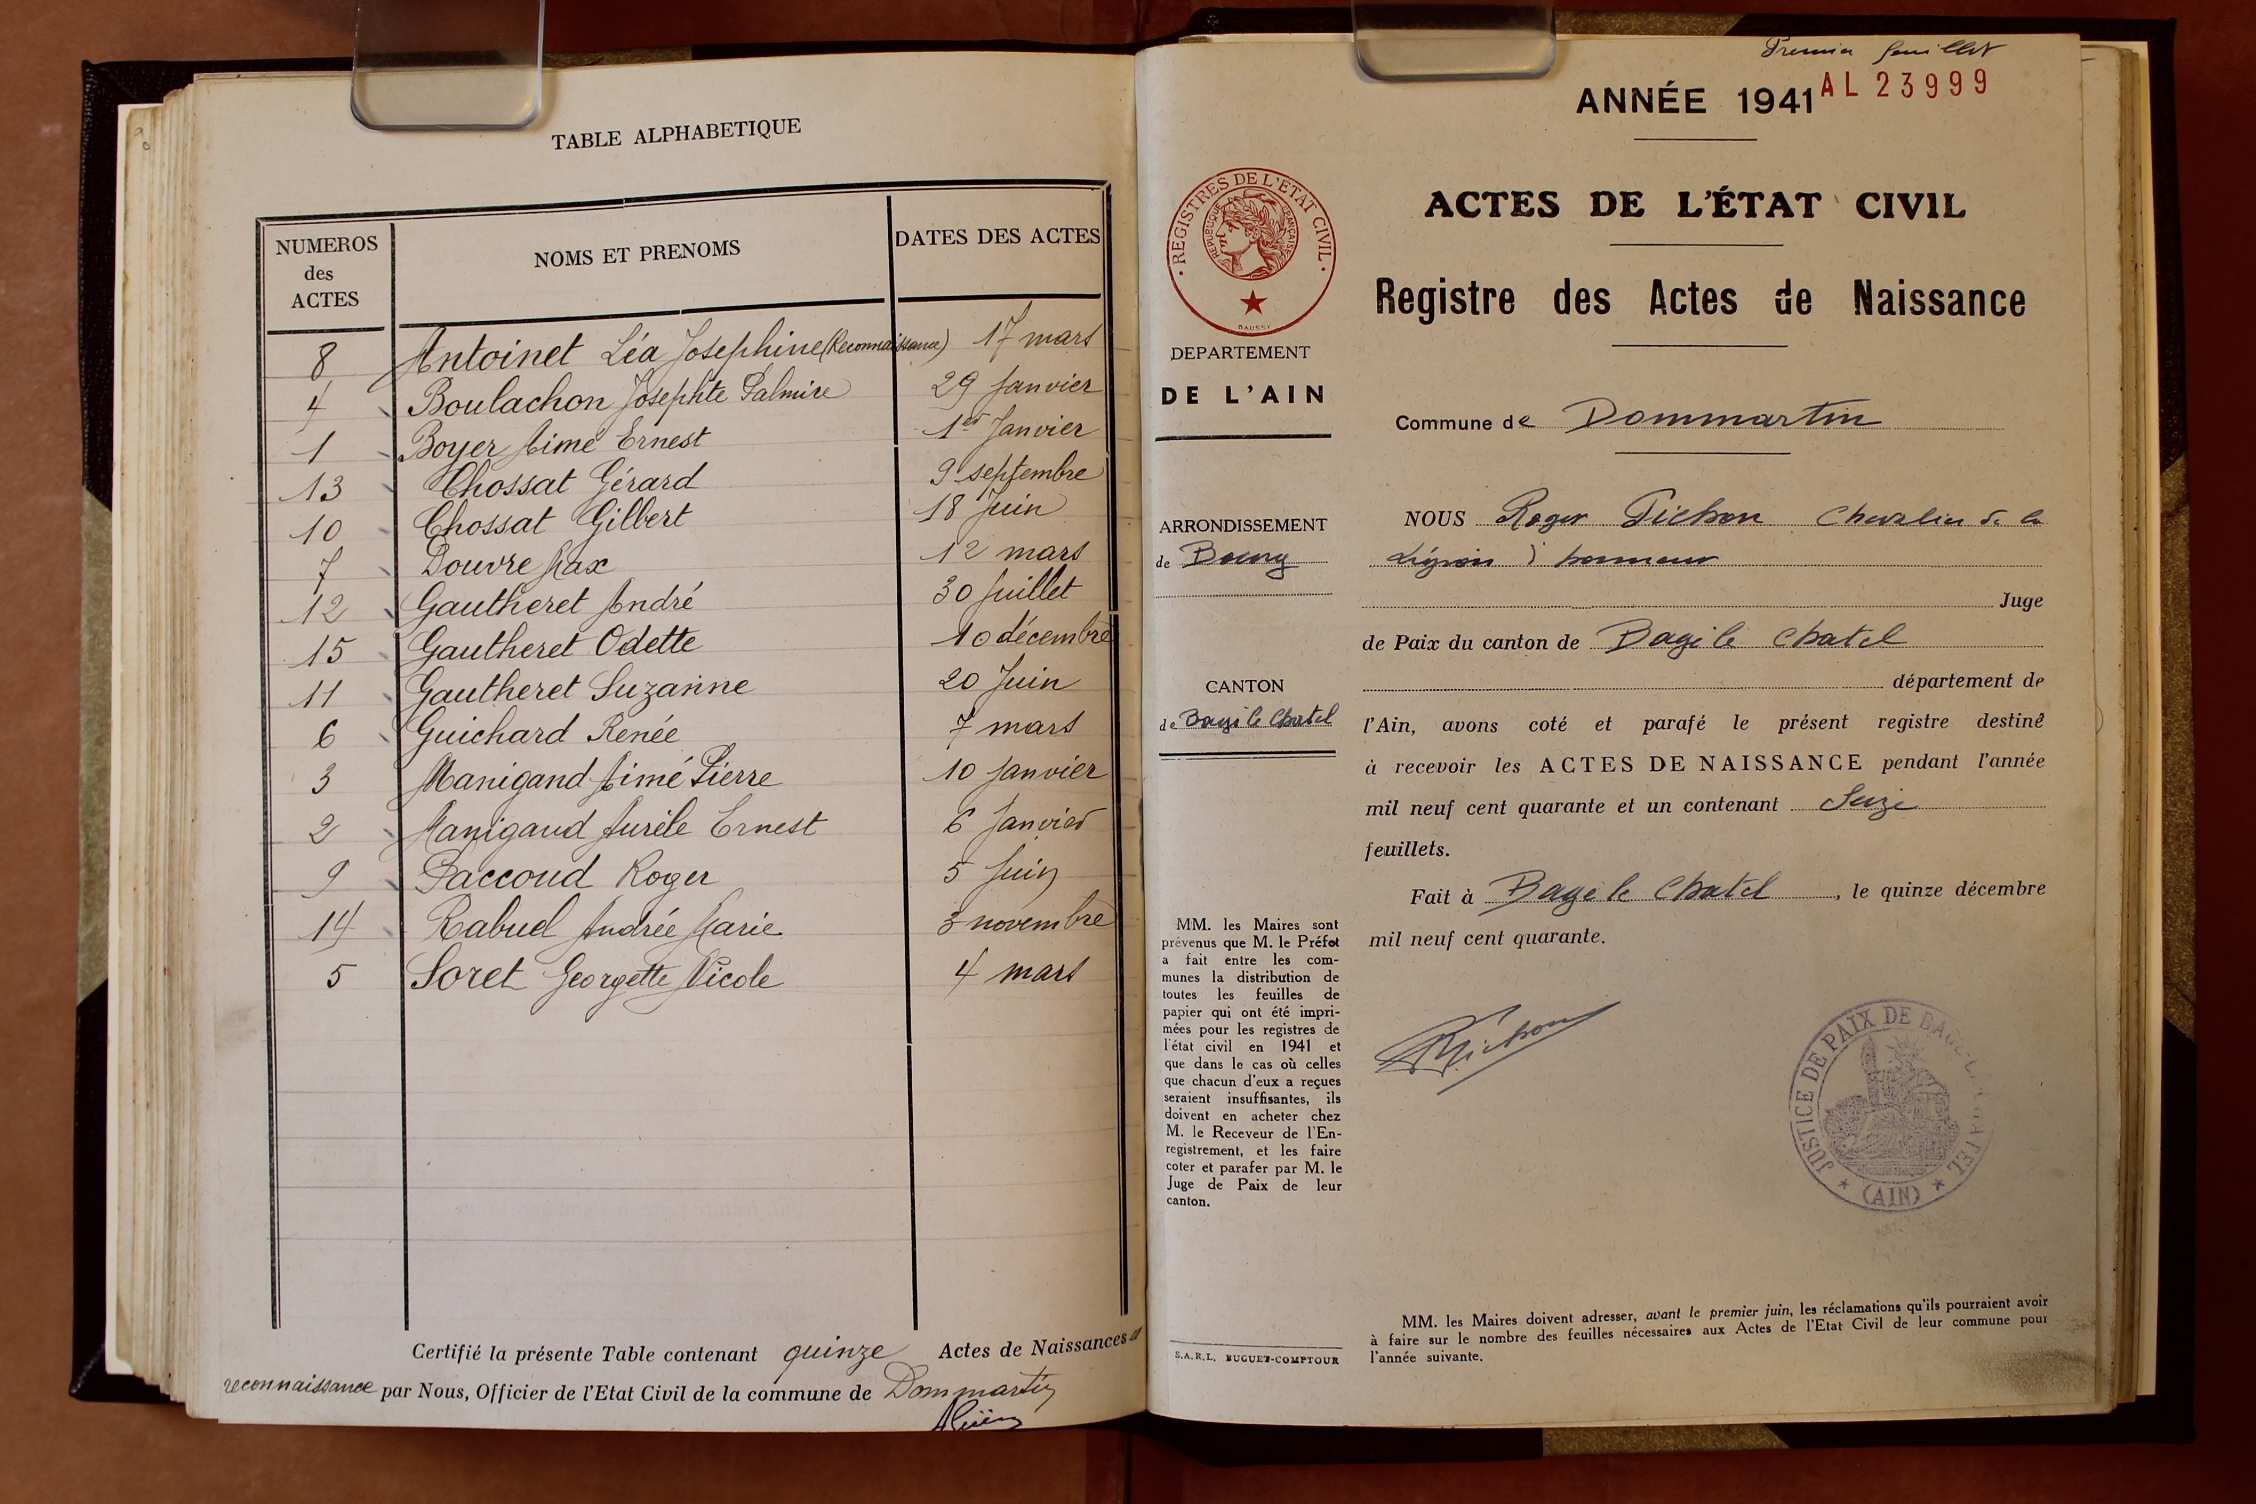 TABLE ALPHABETIQUE
NUMEROS des ACTES NOMS ET PRENOMS DATES DES ACTES
8 Antoinet Léa Josephine (Reconnaissance) 17 mars
4 Boulachon Josephte Palmire 29 Janvier
1 Boyer Aimé Ernest 1er Janvier
13 Chossat Gérard 9 septembre
10 Chossat Gilbert 18 Juin
7 Douvre Max 12 mars
12 Gautheret André 30 Juillet
15 Gautheret Odette 10 décembre
11 Gautheret Suzanne 20 Juin
6 Guichard Renée 7 mars
3 Manigand Aimé Pierre 10 Janvier
2 Manigand Aurèle Ernest 6 Janvier
9 Paccoud Roger 5 Juin
14 Rabuel Andrée Marie 3 novembre
5 Soret Georgette Nicole 4 mars
Certifié la présente Table contenant quinze Actes de Naissances et
reconnaissance par Nous, Officier de l'Etat Civil de la commune de Dommartin
Premier feuillet
ANNÉE 1941 AL 23999
REGISTRES DE L'ETAT CIVIL
REPUBLIQUE FRANÇAISE
DAUSSY
ACTES DE L'ÉTAT CIVIL
Registre des Actes de Naissance
DEPARTEMENT
DE L'AIN
ARRONDISSEMENT
de Bourg
CANTON
de Bagé le Chatel
MM. les Maires sont
prévenus que M. le Préfet
a fait entre les com-
munes la distribution de
toutes les feuilles de
papier qui ont été impri-
mées pour les registres de
l'état civil en 1941 et
que dans le cas où celles
que chacun d'eux a reçues
seraient insuffisantes, ils
doivent en acheter chez
M. le Receveur de l'En-
registrement, et les faire
coter et parafer par M. le
Juge de Paix de leur
canton.
S.A.R.L. BUGUET-COMPTOUR
Commune de Dommartin
NOUS Roger Pichon Chevalier de la
Légion d'honneur
Juge
de Paix du canton de Bagé le Chatel
département de
l'Ain, avons coté et parafé le présent registre destiné
à recevoir les ACTES DE NAISSANCE pendant l'année
mil neuf cent quarante et un contenant Seize
feuillets.
Fait à Bagé le Chatel, le quinze décembre
mil neuf cent quarante.
RPichon
JUSTICE DE PAIX DE BAGÉ-LE-CHATEL
* (AIN) *
MM. les Maires doivent adresser, avant le premier juin, les réclamations qu'ils pourraient avoir
à faire sur le nombre des feuilles nécessaires aux Actes de l'Etat Civil de leur commune pour
l'année suivante.